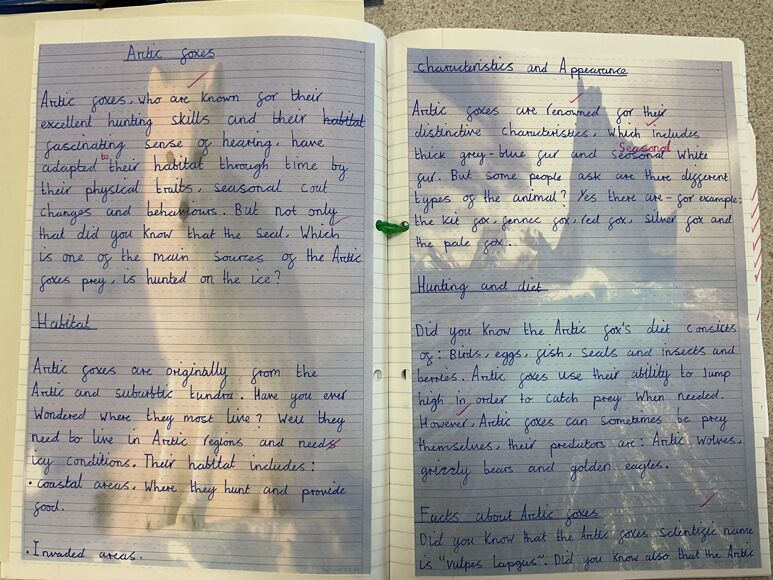 Arctic foxes
Arctic foxes, who are known for their
excellent hunting skills and their habitat
fascinating sense of hearing, have
adapted to their habitat through time by
their physical traits, seasonal coat
changes and behaviours. But not only
that did you know that the seal, Which
is one of the main sources of the Arctic
foxes prey, is hunted on the ice?
Habitat
Arctic foxes are originally from the
Arctic and subarctic tundra. Have you ever
wondered where they most live? Well they
need to live in Arctic regions and needs
icy conditions. Their habitat includes:
• coastal areas, Where they hunt and provide
food.
• Invaded areas.
Characteristics and Appearance
Arctic foxes are renowned for their
distinctive characteristics, which includes
Seasonal
thick grey-blue fur and seosonal White
fur. But some people ask are there different
types of the animal? Yes there are - for example:
the Kit fox, fennec fox, red fox, Silver fox and
the pale fox.
Hunting and diet
Did you know the Arctic fox's diet consists
of: Birds, eggs, fish, seals and insects and
berries. Arctic foxes use their ability to jump
high in order to catch prey when needed.
However, Arctic foxes can sometimes be prey
themselves, their predutors are: Arctic wolves,
grizzly bears and golden eagles.
Facts about Arctic foxes
Did you know that the Arctic foxes scientific name
is "Vulpes Lapgus". Did you know also that the Arctic